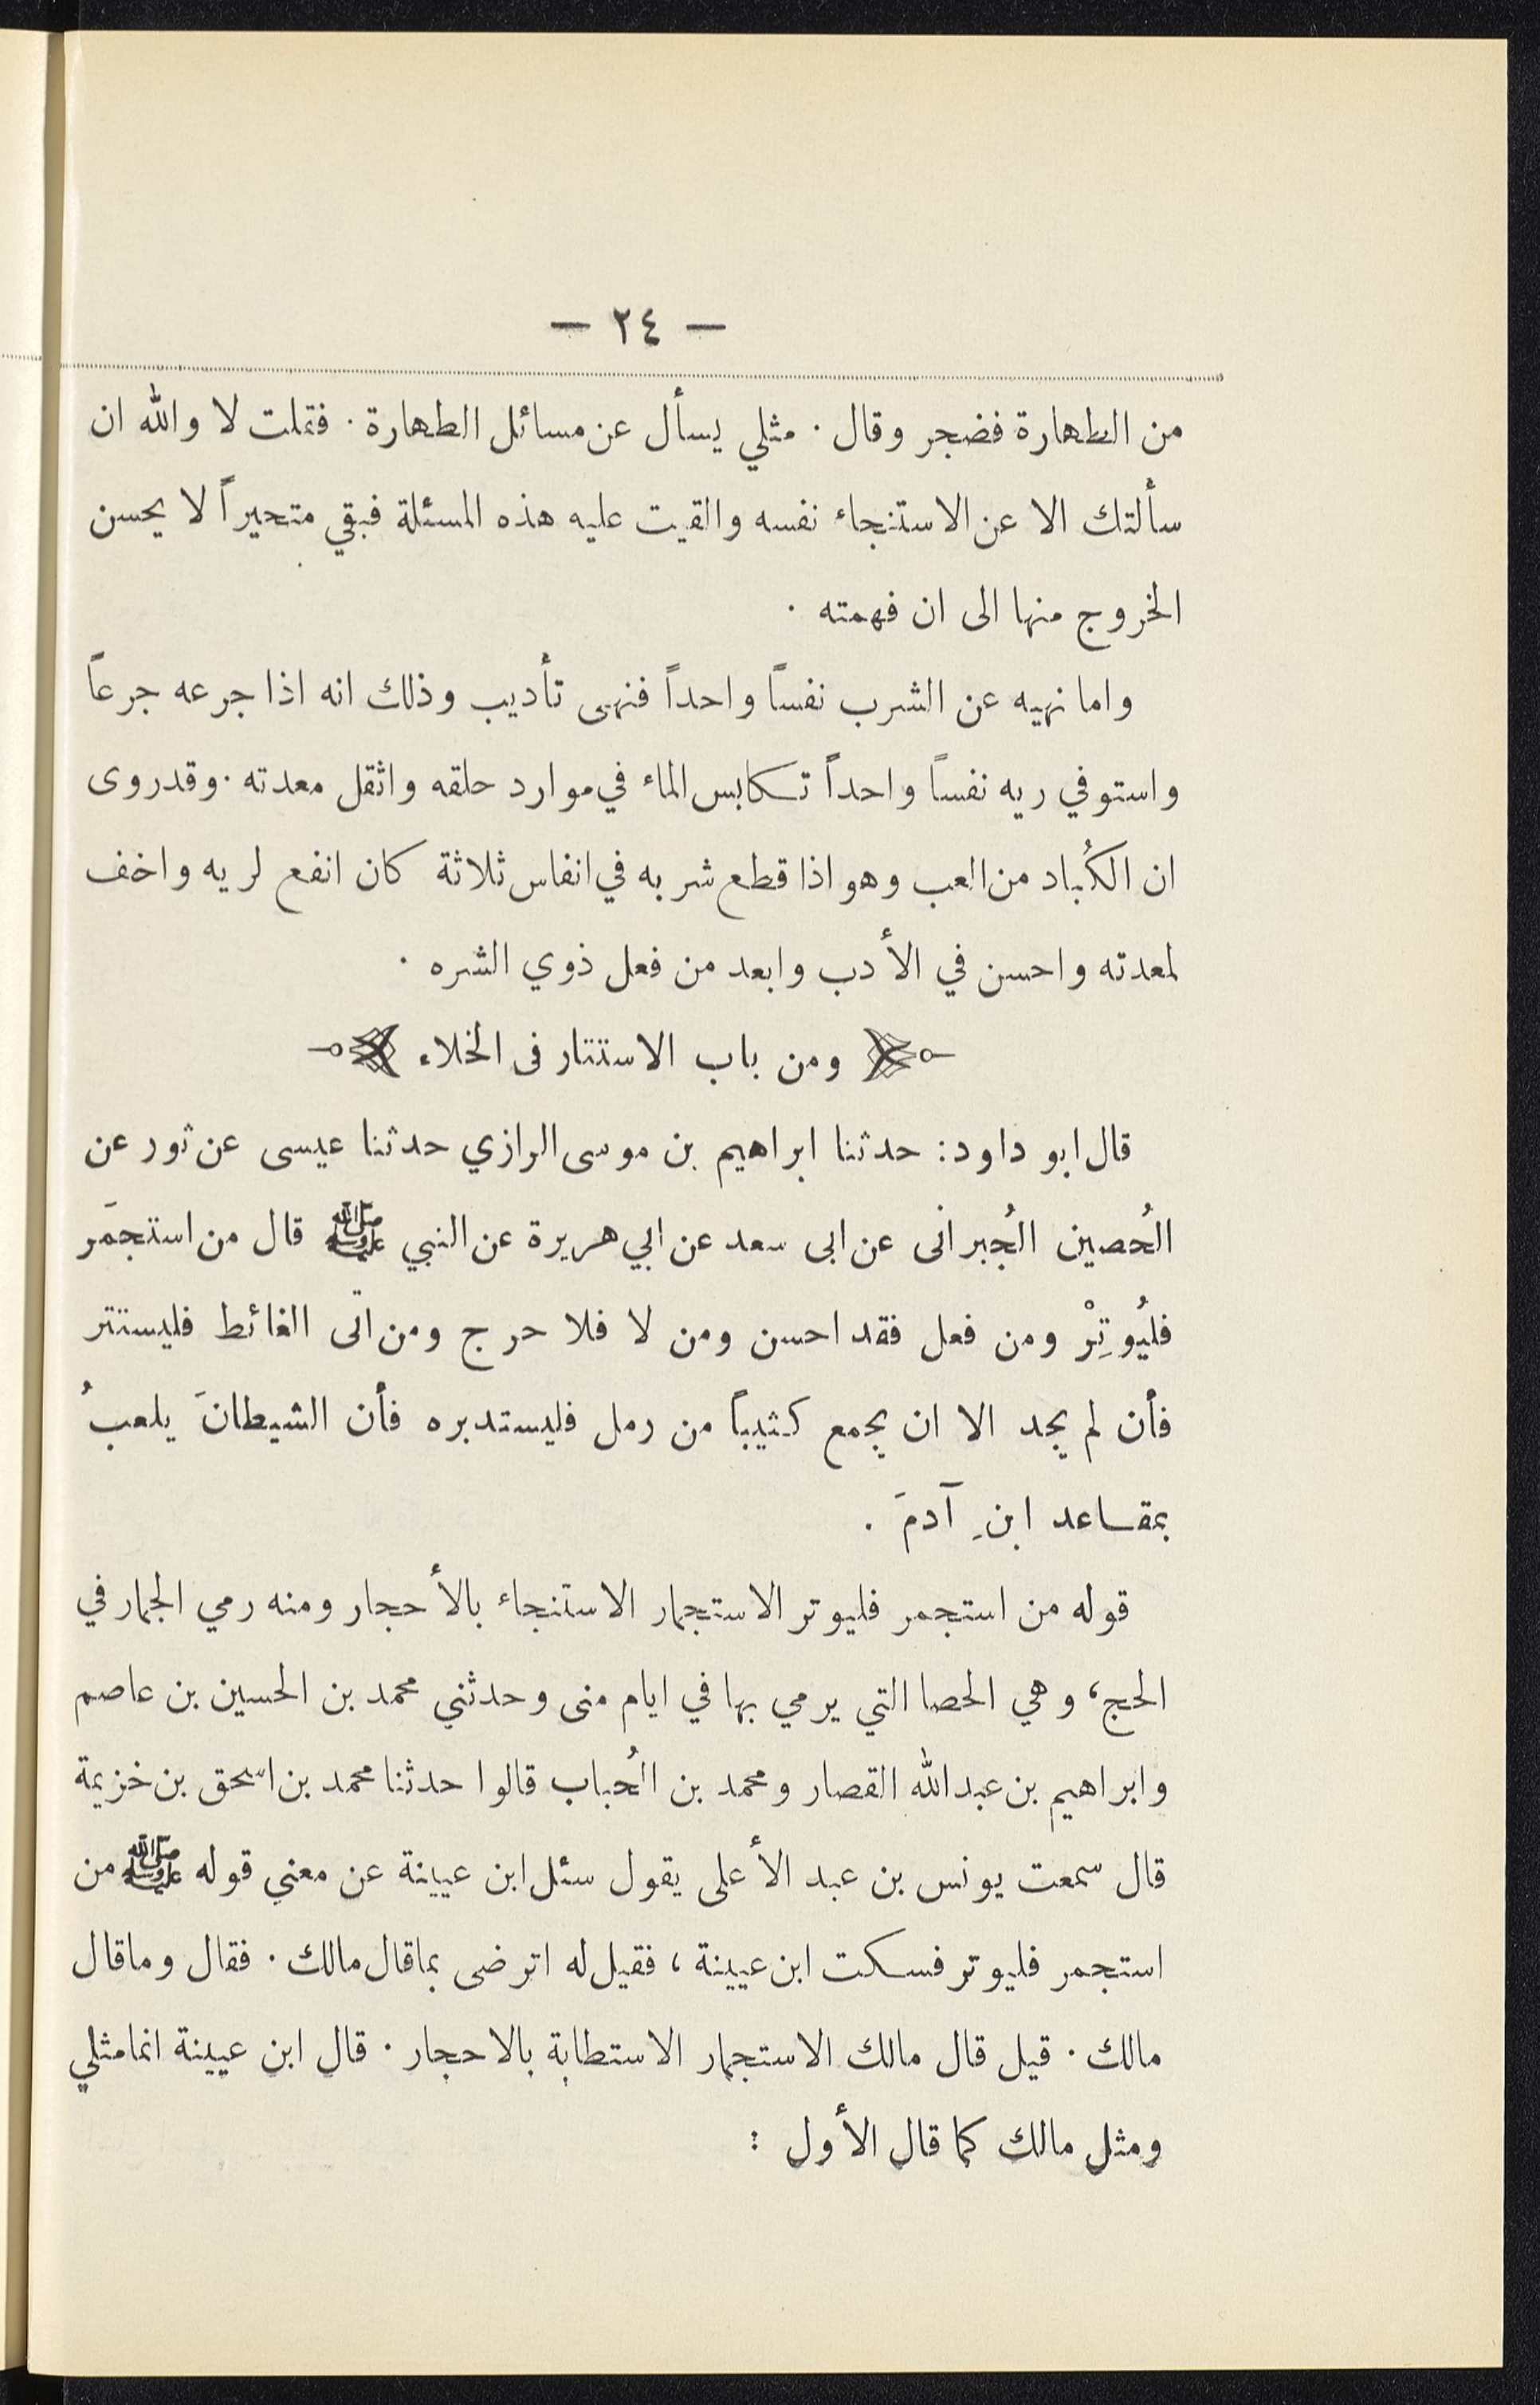 — ٢٤ —
من الطهارة فضجر وقال · مثلي يسأل عن مسائل الطهارة · فقلت لا والله ان
سألتك الا عن الاستنجاء نفسه والقيت عليه هذه المسئلة فبقي متحيراً لا يحسن
الخروج منها الى ان فهمته ·
واما نهيه عن الشرب نفساً واحداً فنهى تأديب وذلك انه اذا جرعه جرعاً
واستوفي ريه نفساً واحداً تكابس الماء في موارد حلقه واثقل معدته · وقد روى
ان الكُباد من العب وهو اذا قطع شربه في انفاس ثلاثة كان انفع لريه واخف
لمعدته واحسن في الأدب وابعد من فعل ذوي الشره ·
ومن باب الاستتار فى الخلاء
قال ابو داود: حدثنا ابراهيم بن موسى الرازي حدثنا عيسى عن ثور عن
الحُصين الجُبرانى عن ابى سعد عن ابي هريرة عن النبي ﷺ قال من استجمَر
فليُوتِرْ ومن فعل فقد احسن ومن لا فلا حرج ومن اتى الغائط فليستتر
فأن لم يجد الا ان يجمع كثيباً من رمل فليستدبره فأن الشيطانَ يلعبُ
بمقاعد ابنِ آدمَ .
قوله من استجمر فليوتر الاستجمار الاستنجاء بالأحجار ومنه رمي الجمار في
الحج، وهي الحصا التي يرمي بها في ايام منى وحدثني محمد بن الحسين بن عاصم
وابراهيم بن عبدالله القصار ومحمد بن الحُباب قالوا حدثنا محمد بن اسحق بن خزيمة
قال سمعت يونس بن عبد الأعلى يقول سئل ابن عيينة عن معني قوله ﷺ من
استجمر فليوتر فسكت ابن عيينة، فقيل له اترضى بما قال مالك · فقال وما قال
مالك · قيل قال مالك الاستجمار الاستطابة بالاحجار · قال ابن عيينة انما مثلي
ومثل مالك كما قال الأول :